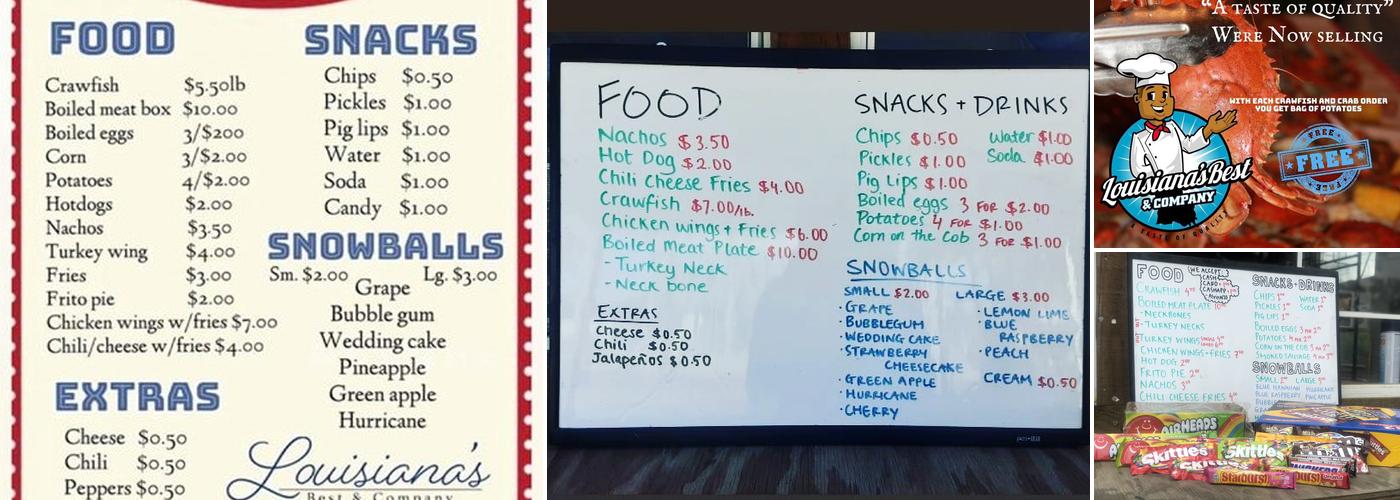 FOOD
Crawfish $5.50lb
Boiled meat box $10.00
Boiled eggs 3/$200
Corn 3/$2.00
Potatoes 4/$2.00
Hotdogs $2.00
Nachos $3.50
Turkey wing $4.00
Fries $3.00
Frito pie $2.00
Chicken wings w/fries $7.00
Chili/cheese w/fries $4.00
EXTRAS
Cheese $0.50
Chili $0.50
Peppers $0.50
SNACKS
Chips $0.50
Pickles $1.00
Pig lips $1.00
Water $1.00
Soda $1.00
Candy $1.00
SNOWBALLS
Sm. $2.00 Lg. $3.00
Grape
Bubble gum
Wedding cake
Pineapple
Green apple
Hurricane
Louisiana's
Best & Company
FOOD
Nachos $3.50
Hot Dog $2.00
Chili Cheese Fries $4.00
Crawfish $7.00/lb.
Chicken wings + Fries $6.00
Boiled Meat Plate $10.00
- Turkey Neck
- Neck bone
EXTRAS
Cheese $0.50
Chili $0.50
Jalapeños $0.50
SNACKS + DRINKS
Chips $0.50 Water $1.00
Pickles $1.00 Soda $1.00
Pig Lips $1.00
Boiled eggs 3 FOR $2.00
Potatoes 4 FOR $1.00
Corn on the Cob 3 FOR $1.00
SNOWBALLS
SMALL $2.00 LARGE $3.00
· GRAPE
· BUBBLEGUM
· WEDDING CAKE
· STRAWBERRY
CHEESECAKE
· GREEN APPLE
· HURRICANE
· CHERRY
· LEMON LIME
· BLUE
RASPBERRY
· PEACH
CREAM $0.50
"A TASTE OF QUALITY"
WERE NOW SELLING
WITH EACH CRAWFISH AND CRAB ORDER
YOU GET BAG OF POTATOES
FREE
FREE
FREE
Louisiana's Best
& COMPANY
A TASTE OF QUALITY
FOOD
WE ACCEPT
CASH
CARD
CASHAPP
CRAWFISH
BOILED MEAT PLATE
- NECKBONES
- TURKEY NECKS
TURKEY WINGS
CHICKEN WINGS + FRIES
HOT DOG
FRITO PIE
NACHOS
CHILI CHEESE FRIES
SNACKS + DRINKS
CHIPS WATER
PICKLES SODA
PIG LIPS
BOILED EGGS
POTATOES
CORN ON THE COB
SMOKED SAUSAGE
SNOWBALLS
SMALL LARGE
BLUE HAWAIIAN HURRICANE
BLUE RASPBERRY PINEAPPLE
AIRHEADS
Skittles
Skittles
Skittles
Starburst
SNICKERS